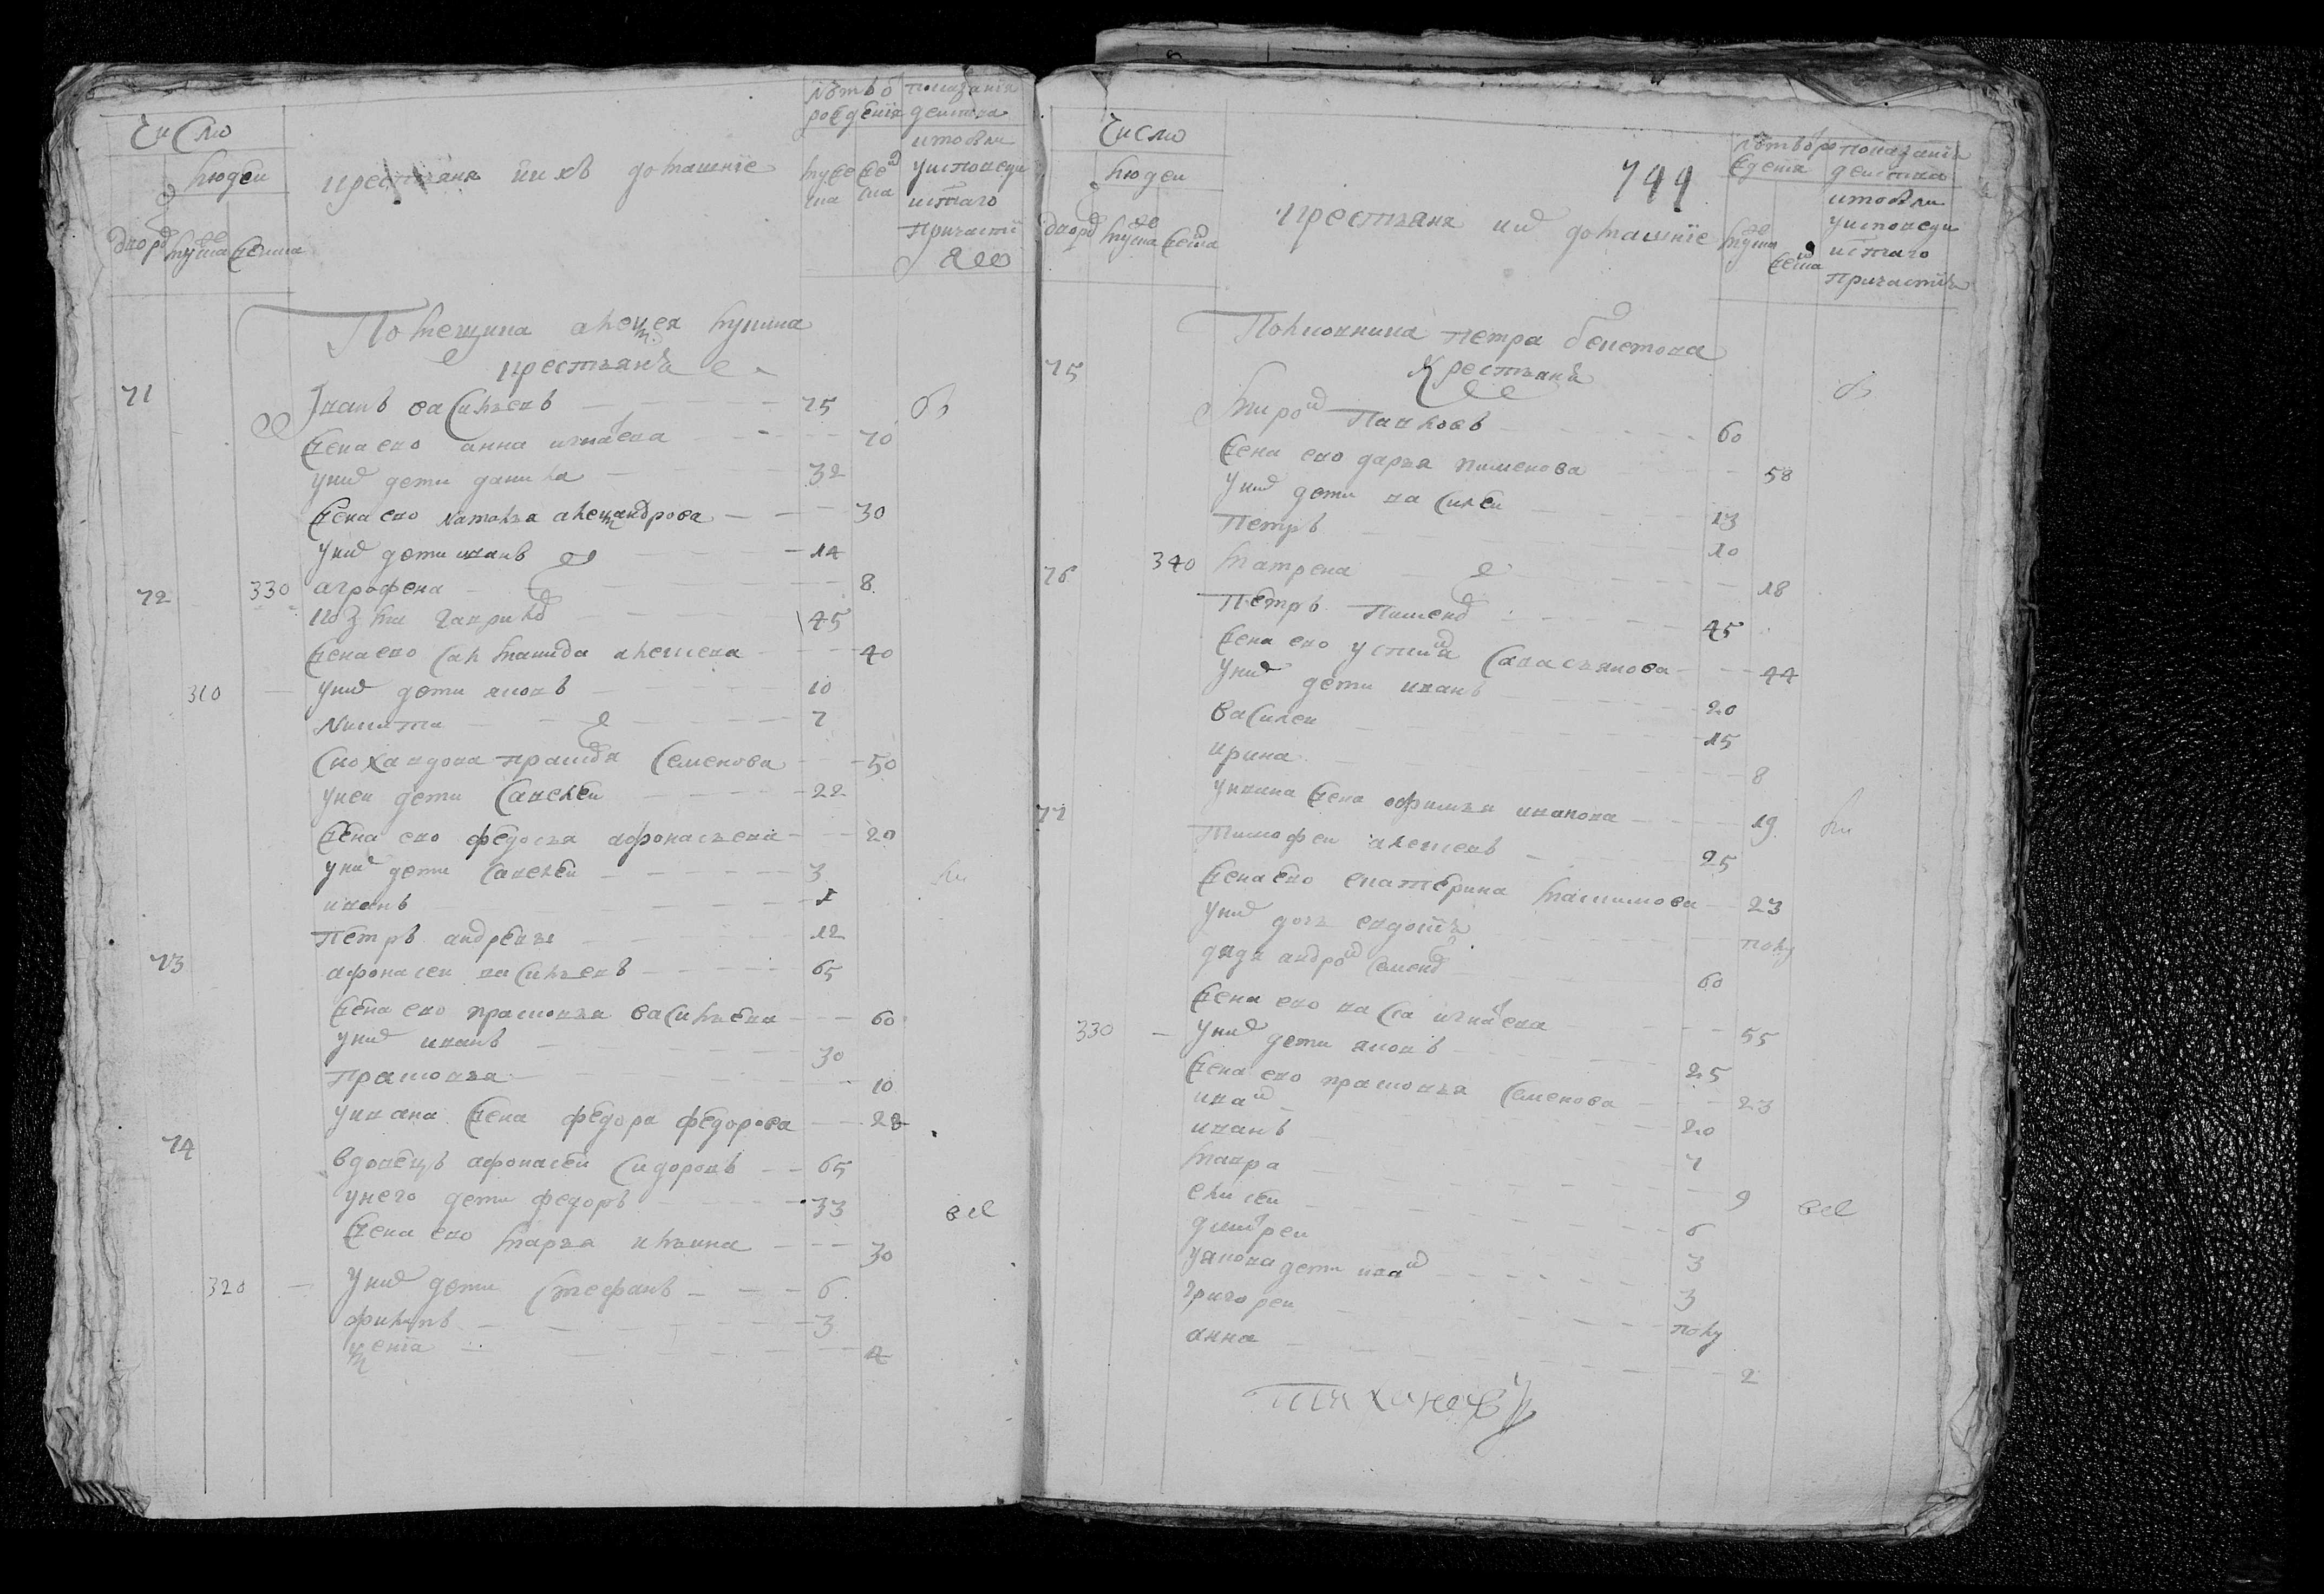 Число
людеи
дворъ
мужеска женска
крестьяня и ихъ домашние
лѣтъ о рождения
мужеска
женска
показания деиства
кто были
у исповеди
и стаго
причастия
Помещика алеѯея
крестьянъ
71 Iванъ василъевъ 75
Жена ево анна игнатева 70
у них дети данила 32
жена ево наталья алеѯандрова 30
у них дети иванъ 14
330 агрофена 8
72 козма гаврилов 45
жена ево саламанида алексеева 40
310 у них дети яковъ 10
никита 7
снохавдова прасковя семенова 50
у неи дети савелеи 22
жена ево федосья афонасьева 20
у них дети савелеи 3
иванъ 1
петръ андреивъ 12
73 афонасеи васильевъ 65
жена ево прасковья васильева 60
у них иванъ 30
прасковья 10
у ивана жена федора федорова 28
74 вдовецъ афонасеи сидоровъ 65
у него дети федоръ 33
жена ево марья ильина 30
320 у них дети стефанъ 6
филипъ 3
ѯения 4
Число
людеи
дворъ
мужеска женска
крестьяня их домашние
799
лѣтъ о рождения
мужеска
женска
показания
деиства
кто были
у исповеди
и стаго
причастия
Полковника петра бекетова
Крестьянъ
75
Мирон Павловъ 60
жена ево дарья пименова 58
у них дети василеи 13
Петръ 10
340 матрена 18
76 Петръ Пименов 45
жена ево устиния савасьянова 44
у них дети иванъ 20
василеи 15
ирина 8
у ивана жена офимья иванова 19
77 тимофеи алексеевъ 25
жена ево екатерина максимова 23
у них дочь евдотья полу
дядя андрон семенов 60
жена ево васса игнатева 55
330 у них дети яковъ 25
жена ево прасковья семенова 23
иван 20
иванъ 7
мавра 9
елисеи 6
дмитреи 3
у якова дети иван 3
григореи полу
анна 2